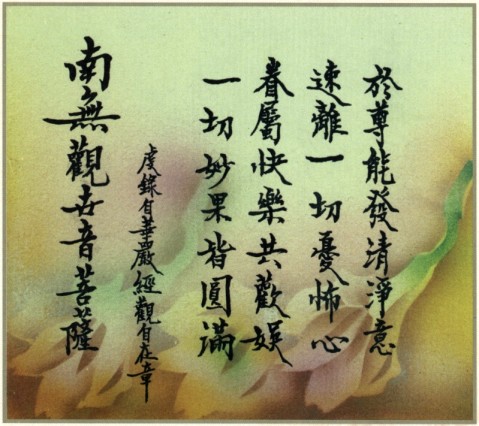 於尊能發清淨意
速離一切憂怖心
眷屬快樂共歡娛
一切妙果皆圓滿
虔錄自華嚴經觀自在章
南無觀世音菩薩